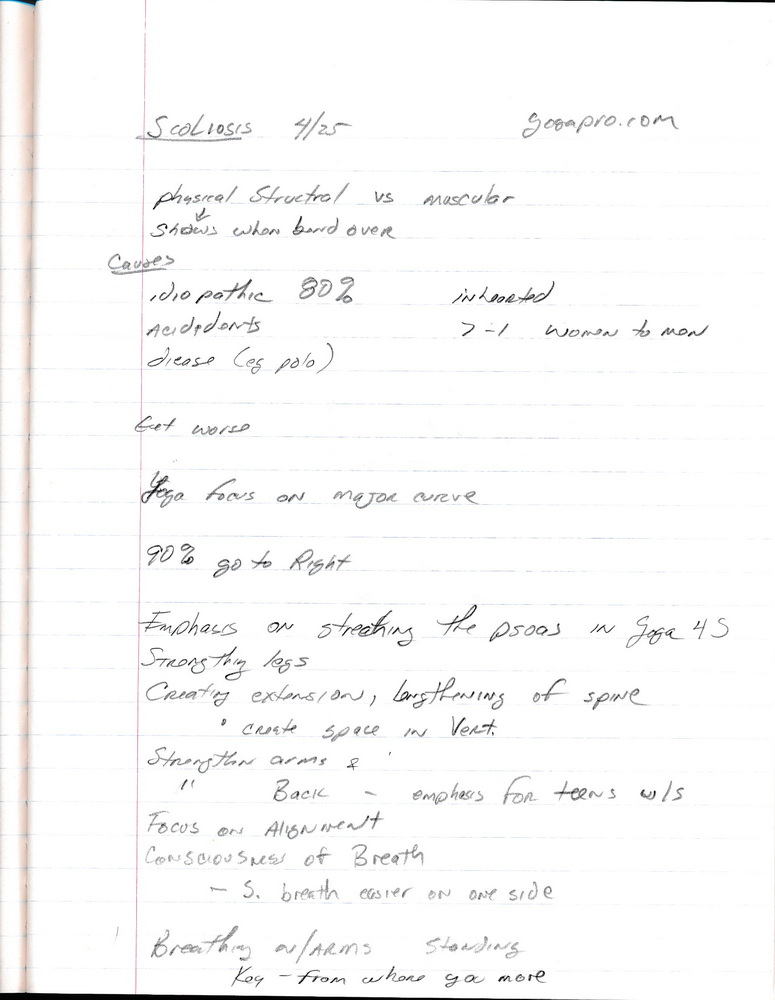 Scoliosis 4/25 yogapro.com
physical Structral vs muscular
Shows when bend over
Causes
idiopathic 80% inhearted
Acididents 7-1 women to men
diease (eg polo)
Get worse
Yoga focus on major curve
90% go to Right
Emphasis on streathing the psoas in Yoga 4 S
Strongthing legs
Creating extension, lengthening of spine
• create space in Vert.
Strengthn arms &
" Back - emphasis for teens w/s
Focus on Alignment
Consciousness of Breath
- S. breath easier on one side
Breathing w/ARMS Standing
Key - from where you move